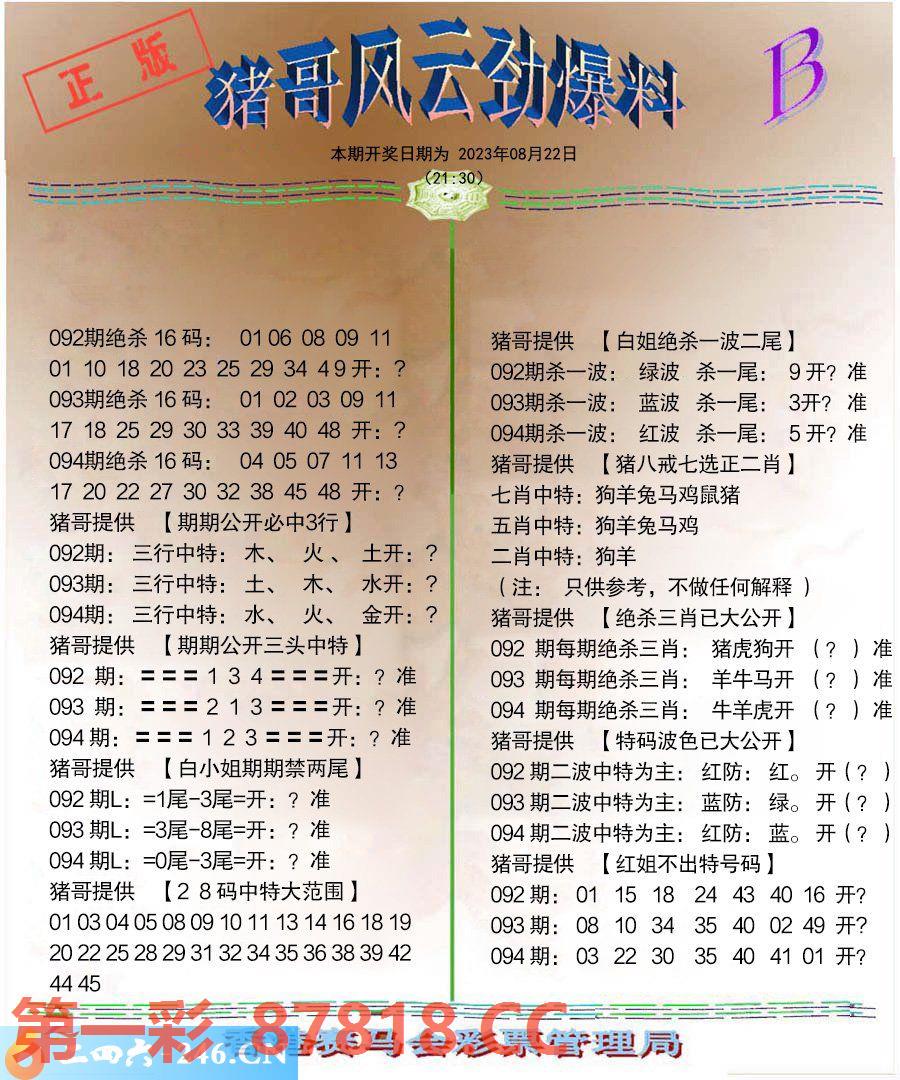 正版
猪哥风云劲爆料
B
本期开奖日期为 2023年08月22日
(21:30)
092期绝杀 16 码： 01 06 08 09 11
01 10 18 20 23 25 29 34 4 9 开：?
093期绝杀 16 码： 01 02 03 09 11
17 18 25 29 30 33 39 40 48 开：?
094期绝杀 16 码： 04 05 07 11 13
17 20 22 27 30 32 38 45 48 开：?
猪哥提供 【期期公开必中3行】
092期： 三行中特： 木、 火 、 土开：?
093期： 三行中特： 土、 木、 水开：?
094期： 三行中特： 水、 火、 金开：?
猪哥提供 【期期公开三头中特】
092 期： 〓〓〓 1 3 4 〓〓〓 开：? 准
093 期： 〓〓〓 2 1 3 〓〓〓 开：? 准
094 期： 〓〓〓 1 2 3 〓〓〓 开：? 准
猪哥提供 【白小姐期期禁两尾】
092 期L：=1尾-3尾=开：? 准
093 期L：=3尾-8尾=开：? 准
094 期L：=0尾-3尾=开：? 准
猪哥提供 【2 8 码中特大范围】
01 03 04 05 08 09 10 11 13 14 16 18 19
20 22 25 28 29 31 32 34 35 36 38 39 42
44 45
猪哥提供 【白姐绝杀一波二尾】
092期杀一波： 绿波 杀一尾： 9 开? 准
093期杀一波： 蓝波 杀一尾： 3开? 准
094期杀一波： 红波 杀一尾： 5 开? 准
猪哥提供 【猪八戒七选正二肖】
七肖中特：狗羊兔马鸡鼠猪
五肖中特：狗羊兔马鸡
二肖中特：狗羊
（注： 只供参考，不做任何解释 ）
猪哥提供 【绝杀三肖已大公开】
092 期每期绝杀三肖： 猪虎狗开 （? ）准
093 期每期绝杀三肖： 羊牛马开 （? ）准
094 期每期绝杀三肖： 牛羊虎开 （? ）准
猪哥提供 【特码波色已大公开】
092 期二波中特为主： 红防： 红。 开（? ）
093 期二波中特为主： 蓝防： 绿。 开（? ）
094 期二波中特为主： 红防： 蓝。 开（? ）
猪哥提供 【红姐不出特号码】
092 期： 01 15 18 24 43 40 16 开?
093 期： 08 10 34 35 40 02 49 开?
094 期： 03 22 30 35 40 41 01 开?
第一彩 87818.CC
二四六 246.CN
香港赛马会彩票管理局